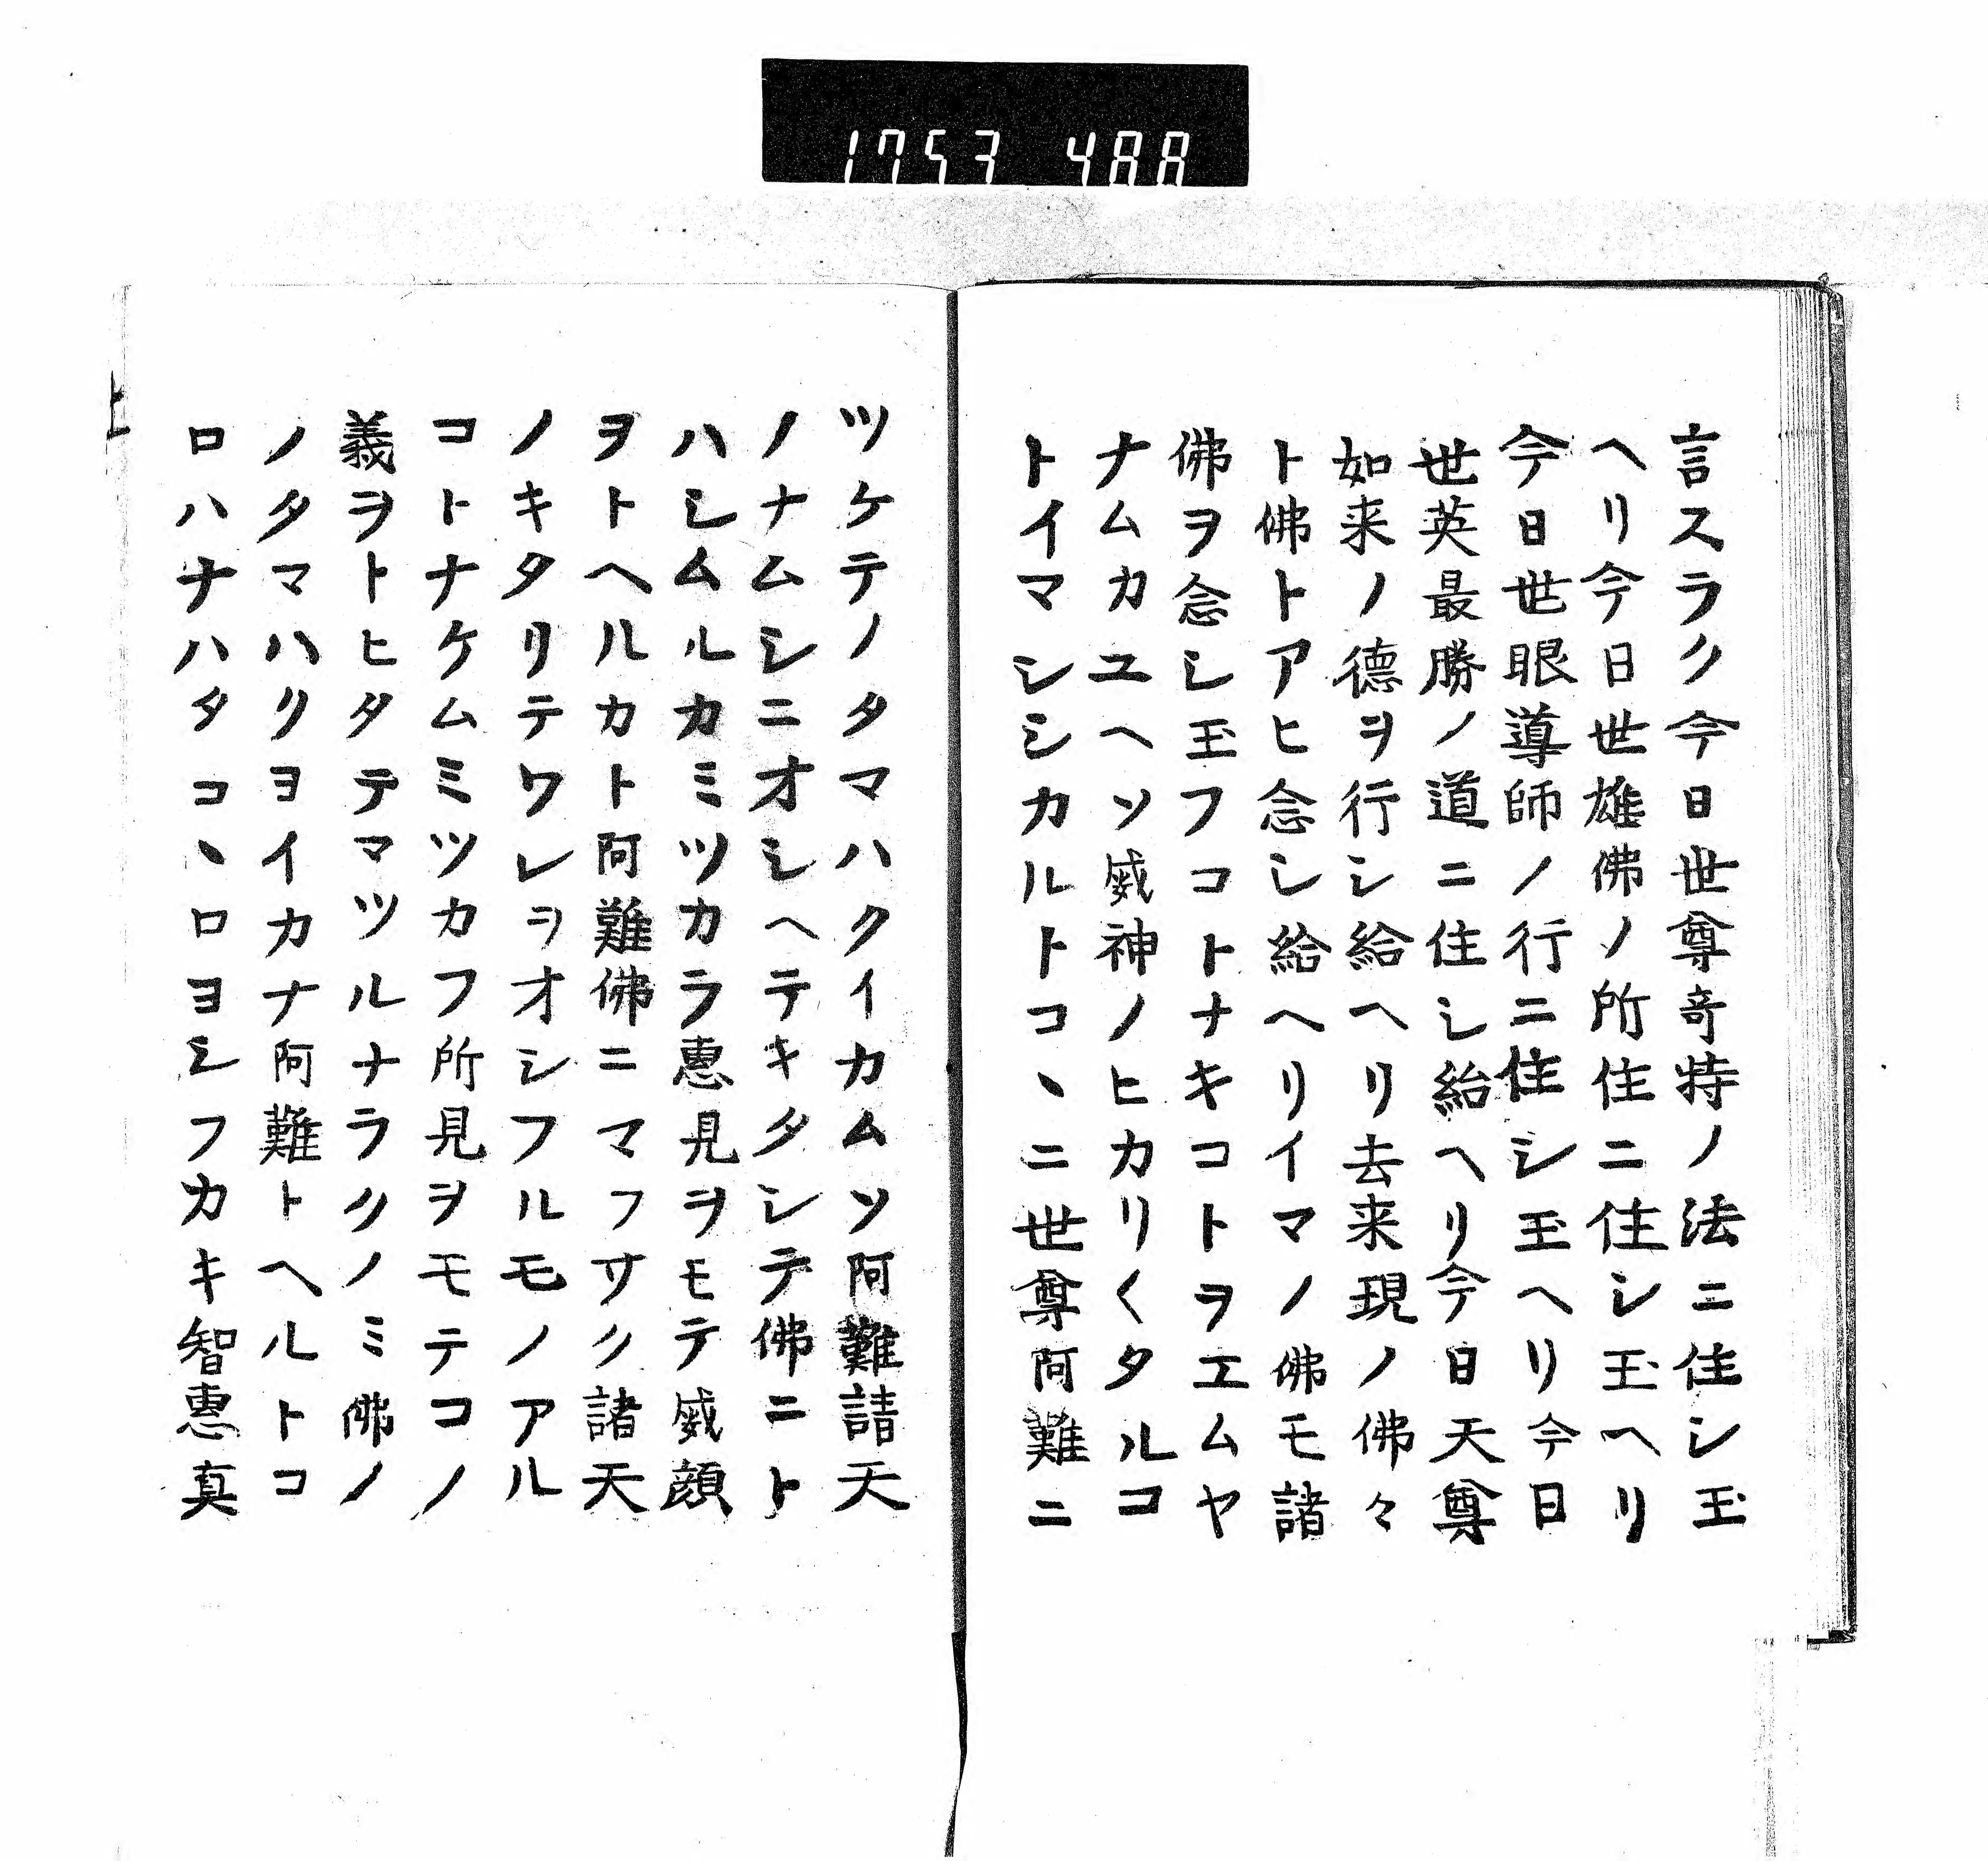 1753 488
言スラク今日世尊奇特ノ法ニ住シ玉
ヘリ今日世雄佛ノ所住ニ住シ玉ヘリ
今日世眼導師ノ行ニ住シ玉ヘリ今日
世英最勝ノ道ニ住シ給ヘリ今日天尊
如来ノ德ヲ行シ給ヘリ去来現ノ佛々
ト佛トアヒ念シ給ヘリイマノ佛モ諸
佛ヲ念シ玉フコトナキコトヲエムヤ
ナムカユヘソ威神ノヒカリ〱タルコ
トイマシシカルトコヽニ世尊阿難ニ
ツケテノタマハクイカムソ阿難請天
ノナムシニオシヘテキタシテ佛ニト
ハシムルカミツカラ惠見ヲモテ威顔
ヲトヘルカト阿難佛ニマフサク諸天
ノキタリテワレヲオシフルモノアル
コトナケムミツカフ所見ヲモテコノ
義ヲトヒタテマツルナラクノミ佛ノ
ノタマハクヨイカナ阿難トヘルトコ
ロハナハタコヽロヨシフカキ智惠真
上